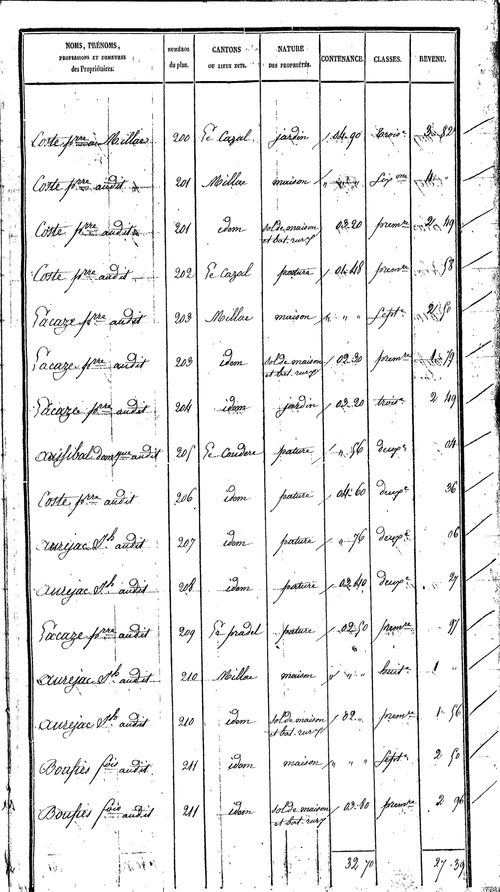 NOMS, PRÉNOMS, PROFESSIONS ET DEMEURES des Propriétaires. NUMÉROS du plan. CANTONS OU LIEUX DITS. NATURE DES PROPRIÉTÉS. CONTENANCE. CLASSES. REVENU.
Coste pre à Millac 200 Le Cazal jardin 04.90 trois 3 82
Coste pre audit 201 Millac maison " " " sixme 4 "
Coste pre audit 201 idem sol de maison et bat. rurx 03.20 premre 2 49
Coste pre audit 202 Le Cazal pature 01.48 premre 58
Lacaze pre audit 203 Millac maison " " " septe 2 50
Lacaze pre audit 203 idem sol de maison et bat. rurx 02.30 premre 1 79
Lacaze pre audit 204 idem jardin 03.20 trois 2 49
audit 205 Le Coudere pature " 56 deuxe 04
Coste pre audit 206 idem pature 04.60 deuxe 36
aurejac audit 207 idem pature " 76 deuxe 06
aurejac audit 208 idem pature 03.40 deuxe 27
Lacaze pre audit 209 Le pradel pature 02.50 premre 97
aurejac audit 210 Millac maison " " " huite 1 "
aurejac audit 210 idem sol de maison et bat. rurx 02. " premre 1 56
Boufies fois audit 211 idem maison " " " septe 2 50
Boufies fois audit 211 idem sol de maison et bat. rurx 03.80 premre 2 96
32 70 27 39